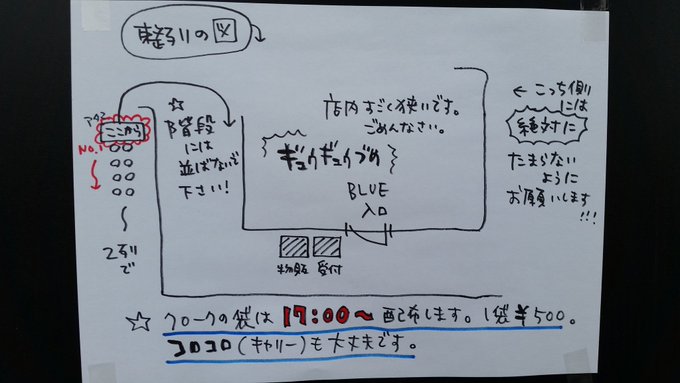 整列の図
アタマ
ここから
No.1
2列で
☆
階段
には
並ばないで
下さい!
店内すごく狭いです。
ごめんなさい。
ギュウギュウづめ
BLUE
入口
物販
受付
← こっち側
には
絶対に
たまらない
ように
お願いします
!!!
☆ クロークの袋は 17:00〜 配布します。1袋¥500。
コロコロ(キャリー)も大丈夫です。